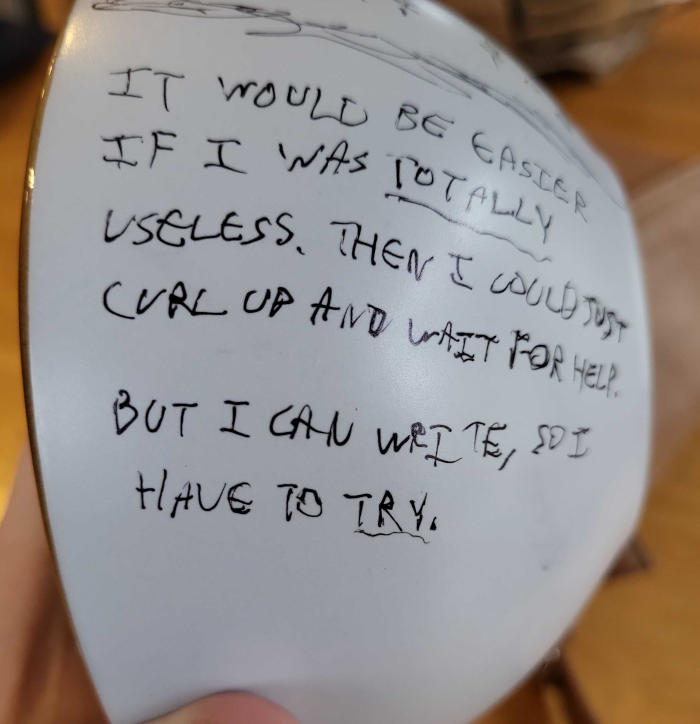 IT WOULD BE EASIER
IF I WAS TOTALLY
USELESS. THEN I COULD JUST
CURL UP AND WAIT FOR HELP.
BUT I CAN WRITE, SO I
HAVE TO TRY.